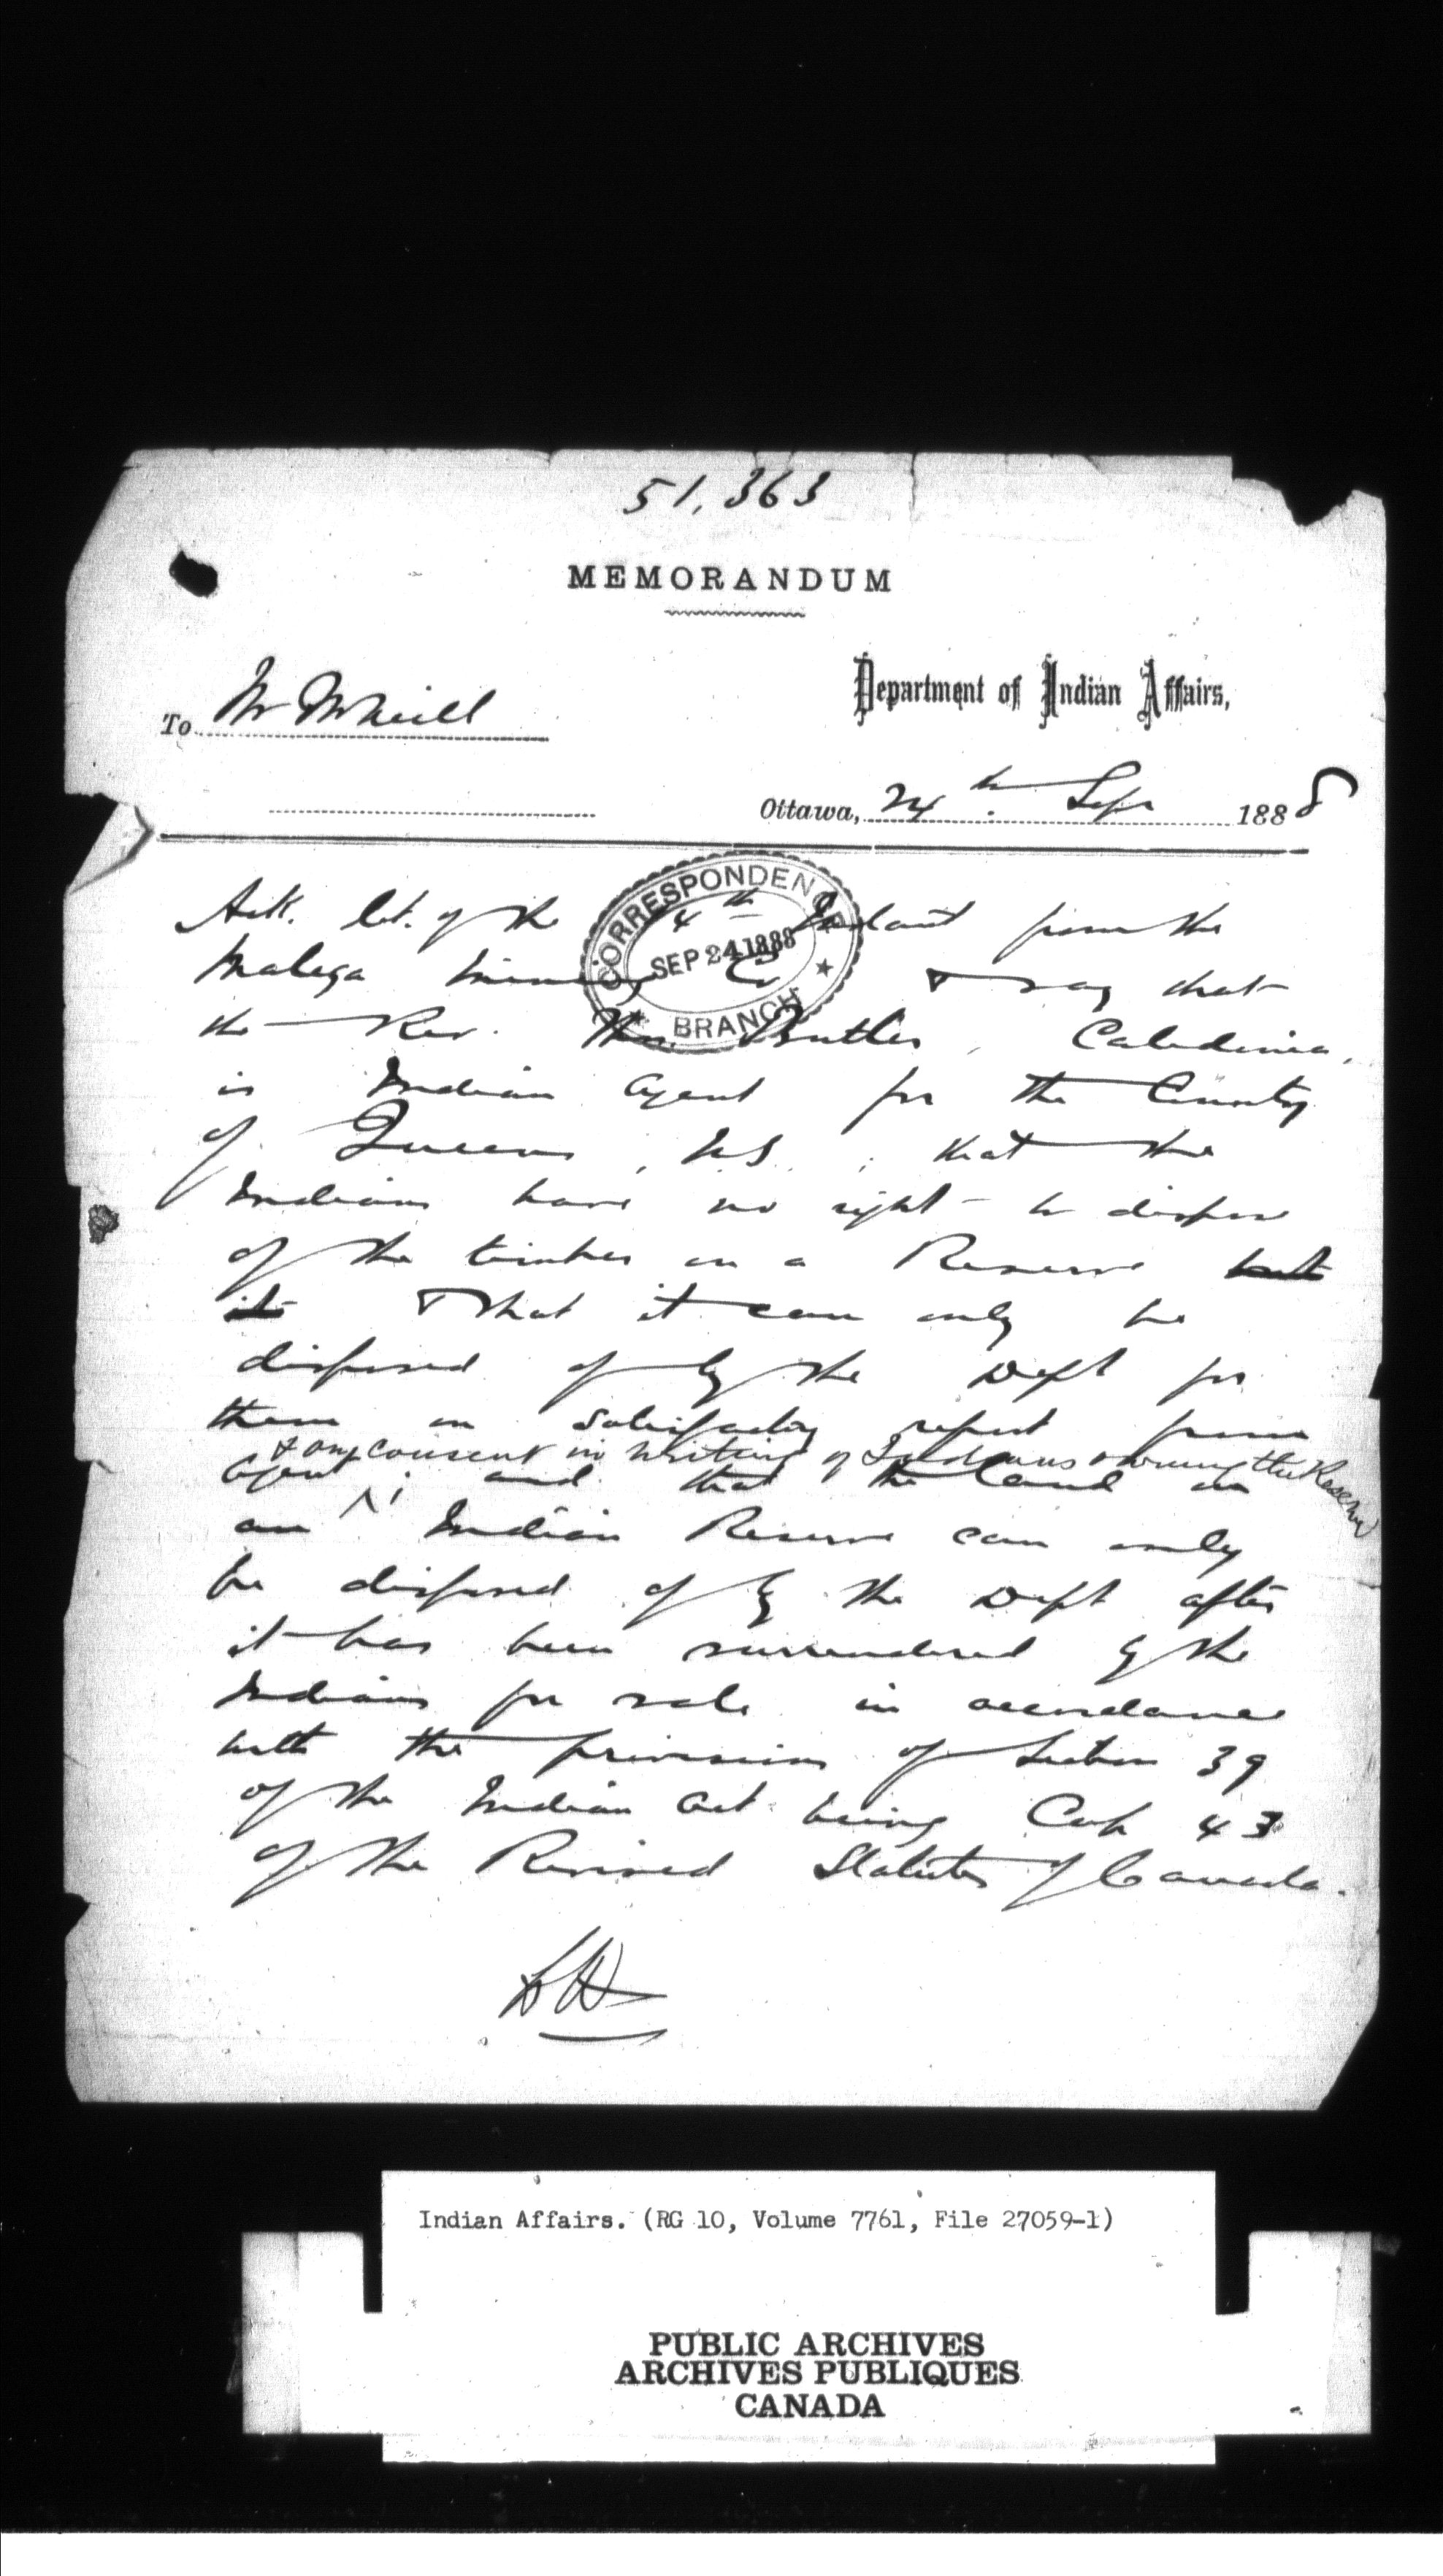 51,363
MEMORANDUM
Department of Indian Affairs,
To Mr McNeill
Ottawa, 24th Sep 1888
CORRESPONDENCE
SEP 24 1888
BRANCH
Ack. let. of the 4th Instant from the
Malega Mining Co & say that
the Rev. Thos. Butler, Caledonia,
is Indian Agent for the County
of Queens, N.S.; that the
Indians have no right to dispose
of the timber on a Reserve but
it & that it can only be
disposed of by the Dept for
them on satisfactory report from
& on consent in writing of Indians owning the Reserve
Agent; and that the land on
an Indian Reserve can only
be disposed of by the Dept after
it has been surrendered by the
Indians for sale in accordance
with the provisions of Section 39
of the Indian Act being Cap 43
of the Revised Statutes of Canada.
Indian Affairs. (RG 10, Volume 7761, File 27059-1)
PUBLIC ARCHIVES
ARCHIVES PUBLIQUES
CANADA